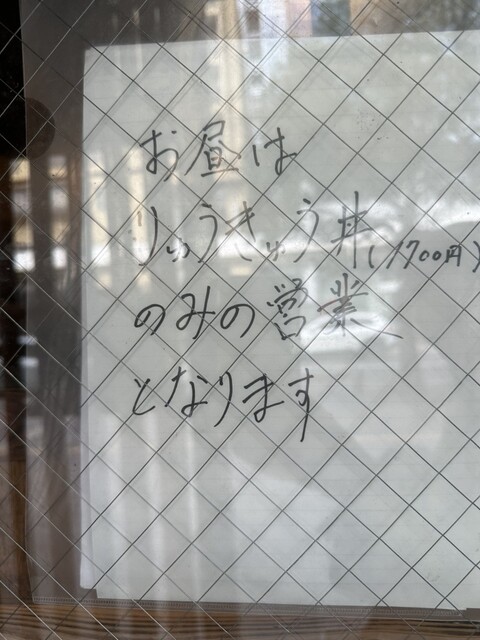 お昼は
りゅうきゅう丼(1700円)
のみの営業
となります